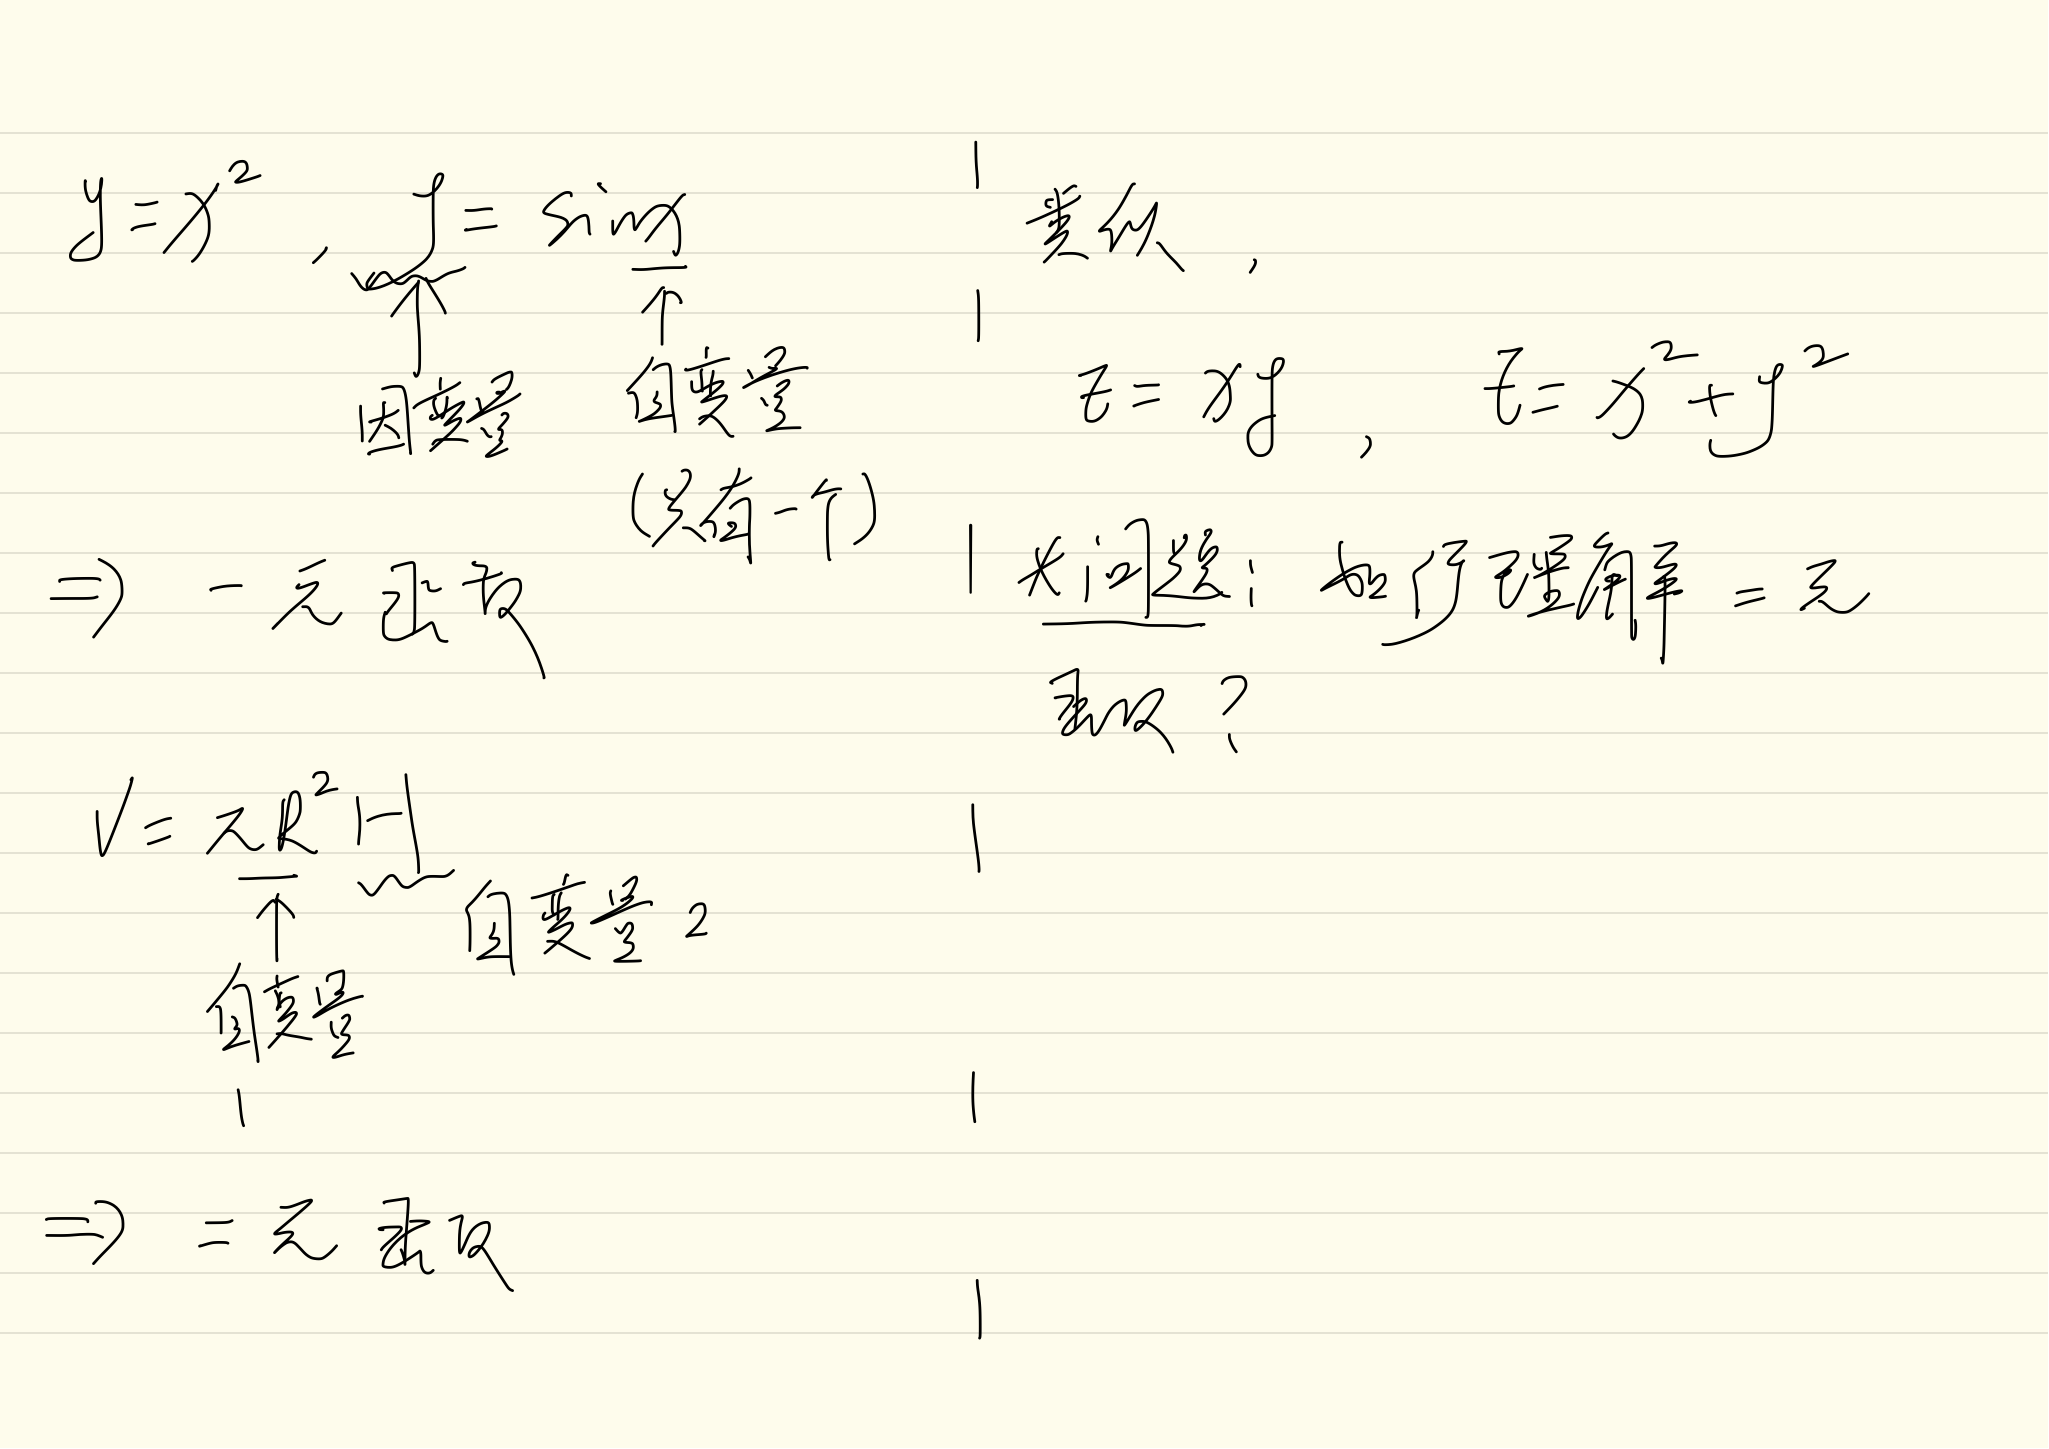 y=x², y=sinx
因变量 自变量
(只有一个)
⇒ 一元函数
V=πR²H
自变量2
自变量
1
⇒ 二元函数
类似,
z=xy, z=x²+y²
*问题: 如何理解二元
函数?